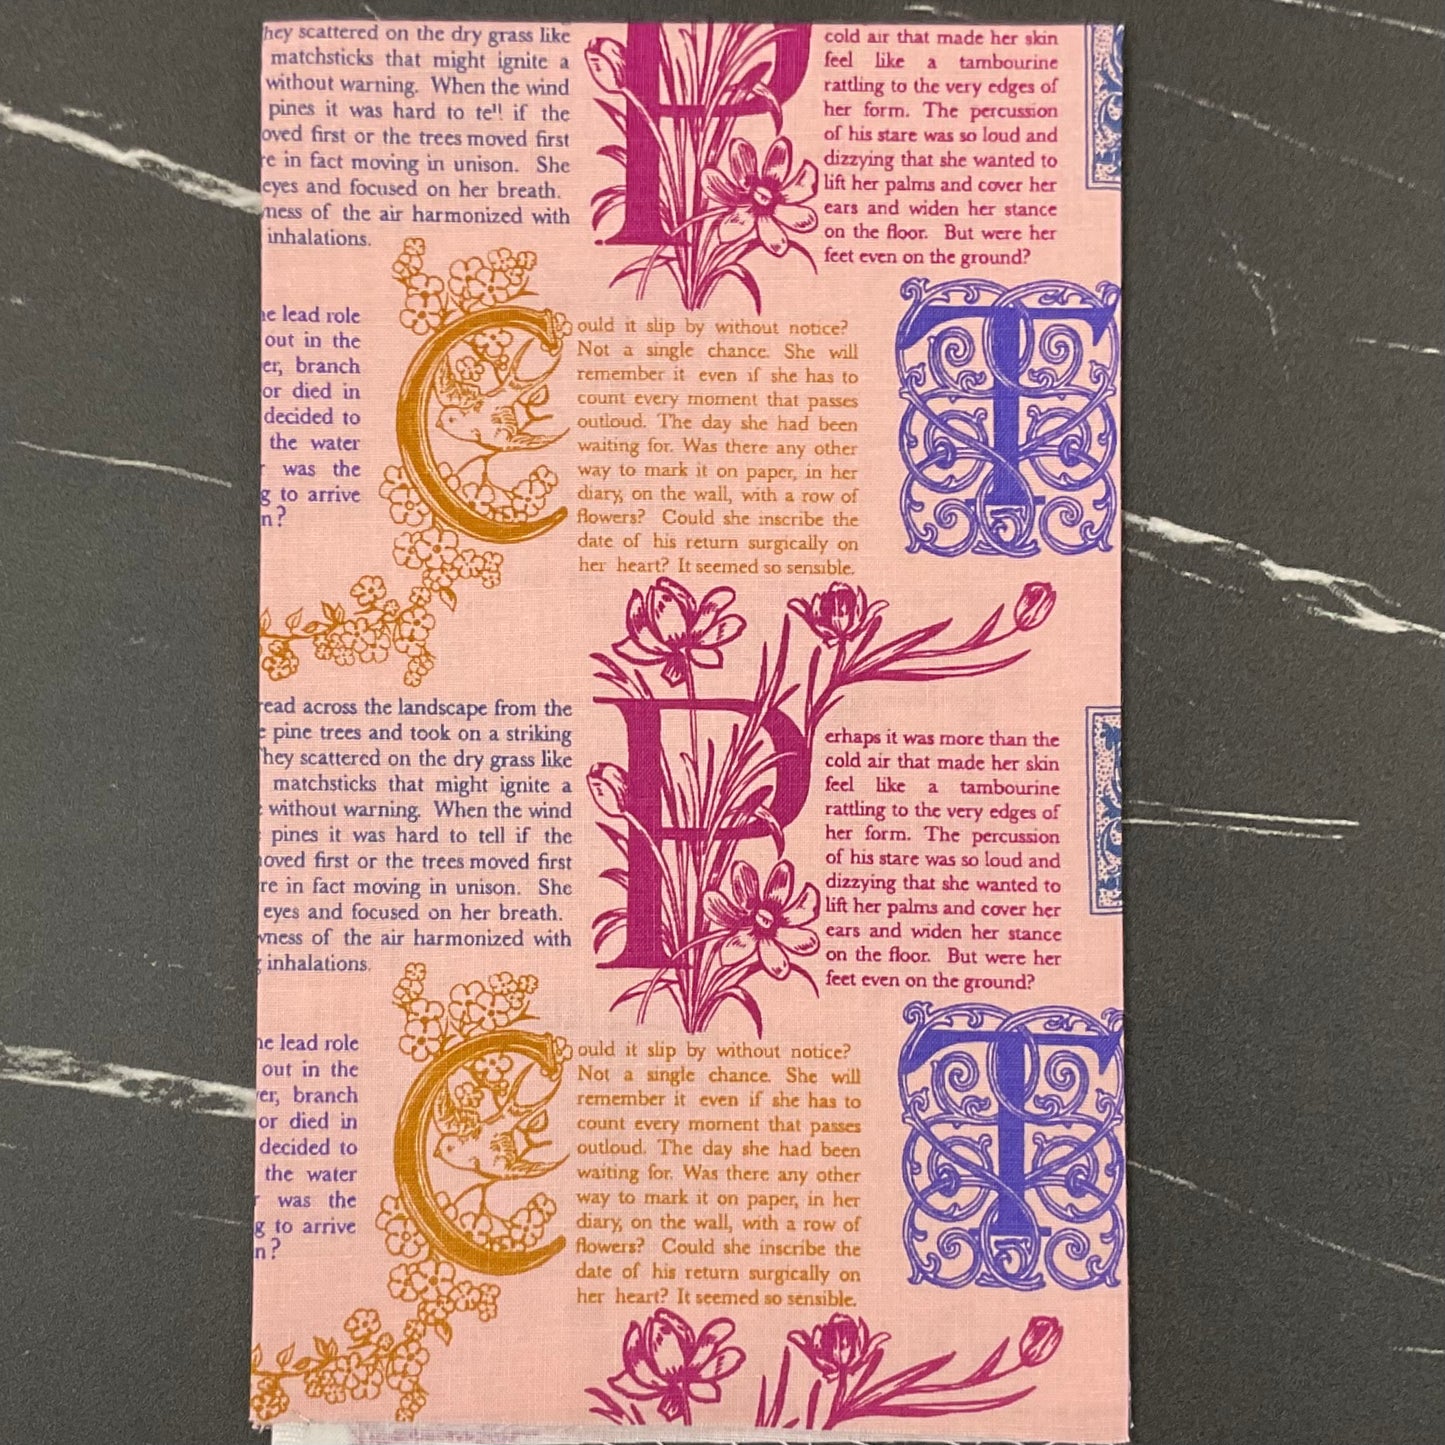 hey scattered on the dry grass like
matchsticks that might ignite a
without warning. When the wind
pines it was hard to tell if the
oved first or the trees moved first
e in fact moving in unison. She
eyes and focused on her breath.
ness of the air harmonized with
inhalations.
P
cold air that made her skin
feel like a tambourine
rattling to the very edges of
her form. The percussion
of his stare was so loud and
dizzying that she wanted to
lift her palms and cover her
ears and widen her stance
on the floor. But were her
feet even on the ground?
e lead role
out in the
er, branch
or died in
decided to
the water
was the
g to arrive
n?
C
ould it slip by without notice?
Not a single chance. She will
remember it even if she has to
count every moment that passes
outloud. The day she had been
waiting for. Was there any other
way to mark it on paper, in her
diary, on the wall, with a row of
flowers? Could she inscribe the
date of his return surgically on
her heart? It seemed so sensible.
T
read across the landscape from the
pine trees and took on a striking
hey scattered on the dry grass like
matchsticks that might ignite a
without warning. When the wind
pines it was hard to tell if the
oved first or the trees moved first
re in fact moving in unison. She
eyes and focused on her breath.
ness of the air harmonized with
inhalations.
P
erhaps it was more than the
cold air that made her skin
feel like a tambourine
rattling to the very edges of
her form. The percussion
of his stare was so loud and
dizzying that she wanted to
lift her palms and cover her
ears and widen her stance
on the floor. But were her
feet even on the ground?
he lead role
out in the
er, branch
or died in
decided to
the water
was the
g to arrive
n?
C
ould it slip by without notice?
Not a single chance. She will
remember it even if she has to
count every moment that passes
outloud. The day she had been
waiting for. Was there any other
way to mark it on paper, in her
diary, on the wall, with a row of
flowers? Could she inscribe the
date of his return surgically on
her heart? It seemed so sensible.
T